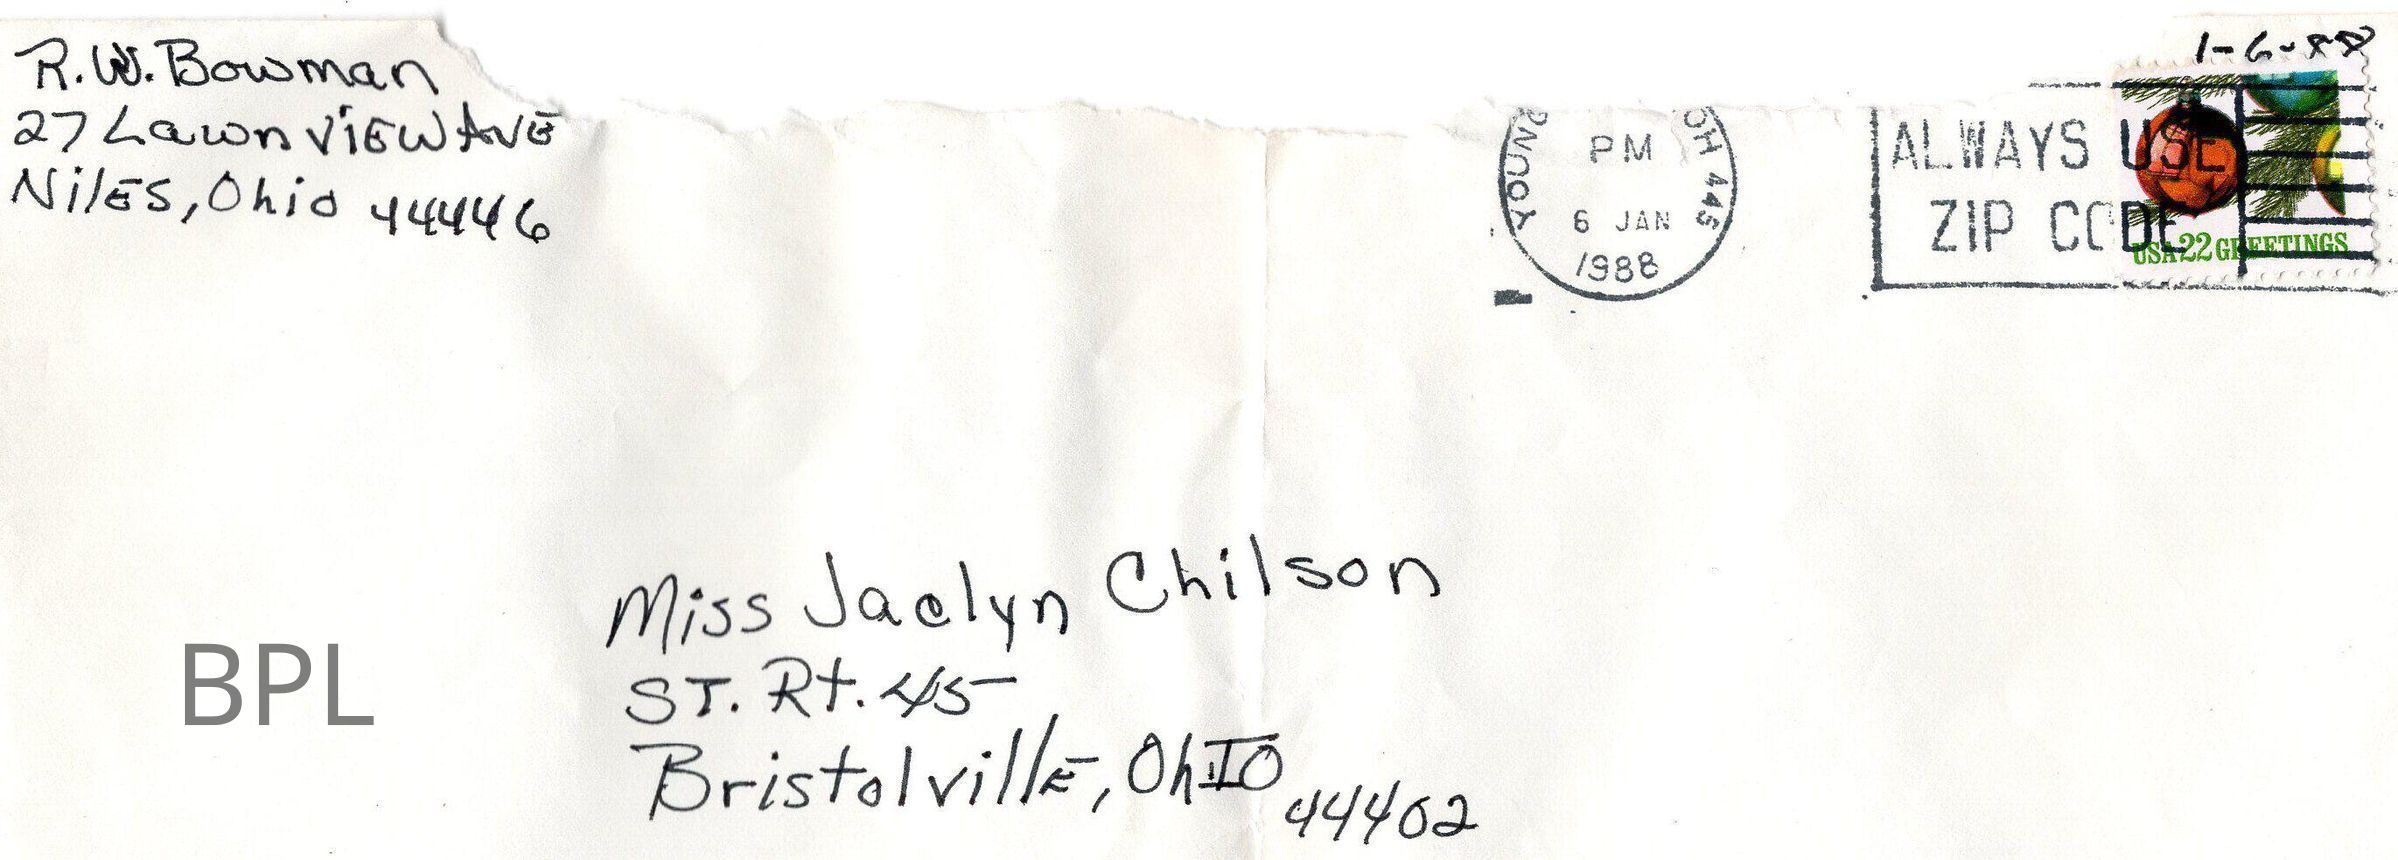 R.W. Bowman
27 Lawnview Ave
Niles, Ohio 44446
1-6-88
PM
OH 445
6 JAN
1988
ALWAYS USE
ZIP CODE
USA 22 GREETINGS
Miss Jaclyn Chilson
ST. Rt. 45
Bristolville, Ohio
44402
BPL